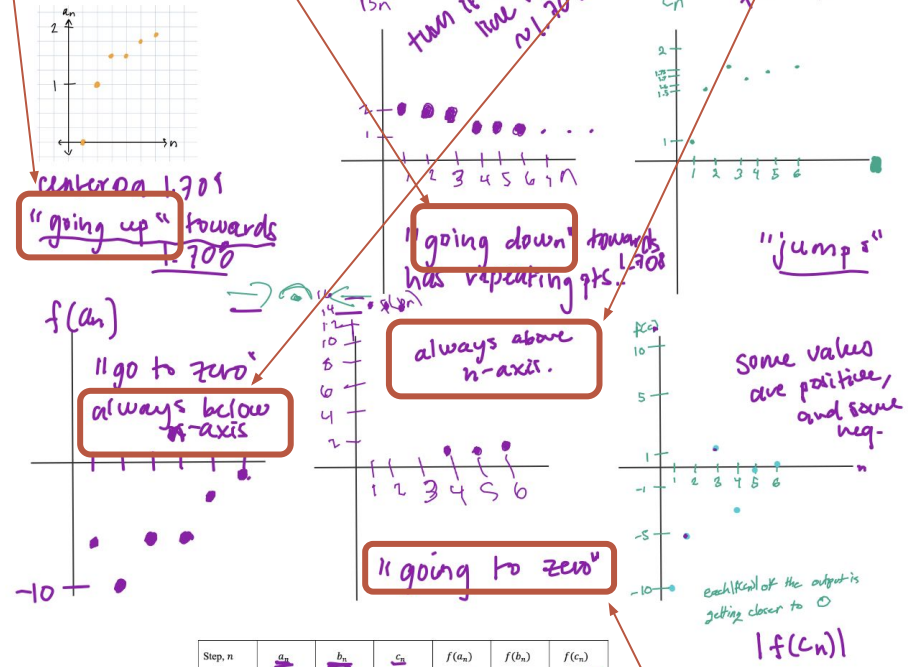 aₙ
2
1
n
1.709
"going up" towards
1.708
bₙ
turn
line
~1.70
2
1
1 2 3 4 5 6 7 n
"going down" towards
1.708
has repeating pts.
cₙ
2
1
1 2 3 4 5 6
"jumps"
f(aₙ)
"go to zero"
always below
n-axis
-10
f(bₙ)
14
12
10
8
6
4
2
1 2 3 4 5 6
always above
n-axis.
"going to zero"
f(cₙ)
10
5
1
-1
-5
-10
1 2 3 4 5 6
n
some values
are positive,
and some
neg.
of the output is
getting closer to 0
|f(cₙ)|
Step, n aₙ bₙ cₙ f(aₙ) f(bₙ) f(cₙ)